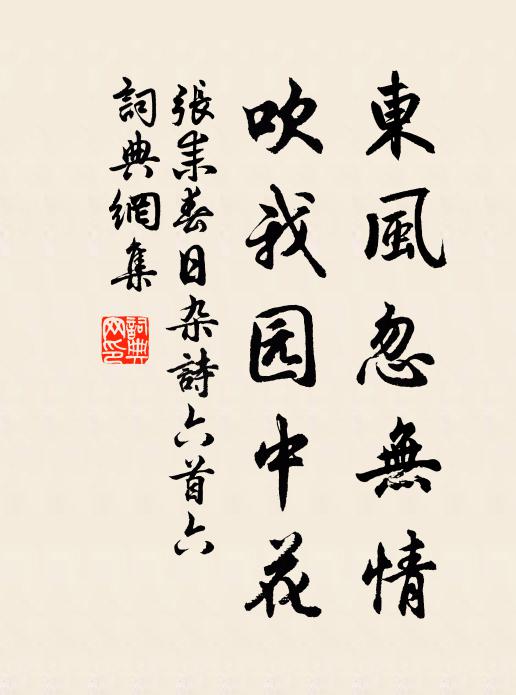 東風忽無情
吹我园中花
張耒春日杂詩六首六
詞典網集
詞典网印